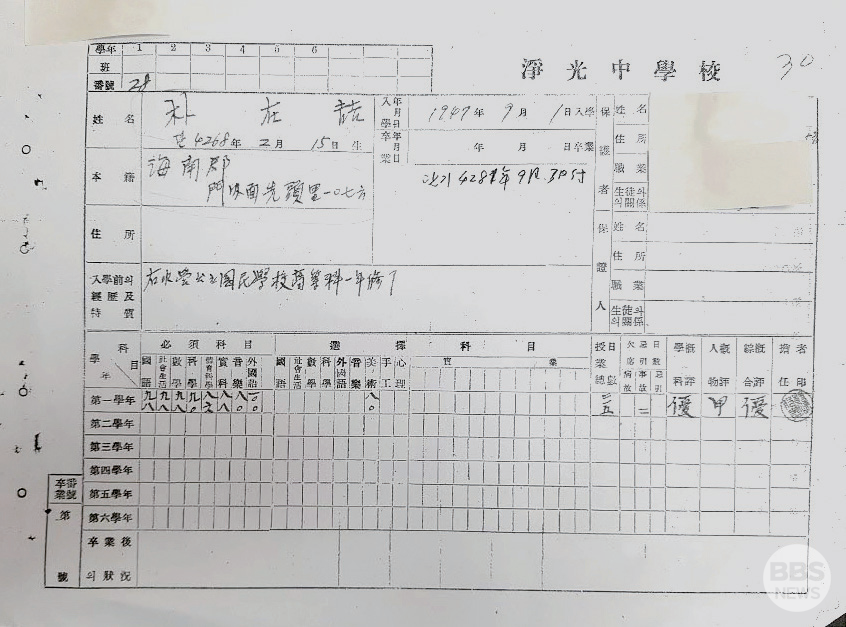 學年 1 2 3 4 5 6
班
番號 28
淨光中學校 30
姓名 朴在喆
4268年 2月 15日生
入學年月日 1947年 9月 1日 入學
卒業年月日 年 月 日 卒業
4281年 9月 30日付
本籍 海南郡
門內面先頭里一〇七六
住所
入學前의經歷及特質 右水營公立國民學校高等科一年修了
保護者
姓名
住所
職業
生徒와의關係
保證人
姓名
住所
職業
生徒와의關係
科目
學年
必須科目
國語 社會生活 數學 科學 體育科學 實科 音樂 外國語
選擇科目
國語 社會生活 數學 科學 外國語 音樂 美術 手工 心理 實業
授業總日數
學科槪評 人物槪評 綜合槪評 擔任者印
第一學年 九八 九八 九八 九〇 八八 八〇 一〇〇 八〇 優 甲 優
第二學年
第三學年
第四學年
第五學年
第六學年
卒業番號
第
號
卒業後의狀況
BBS
NEWS